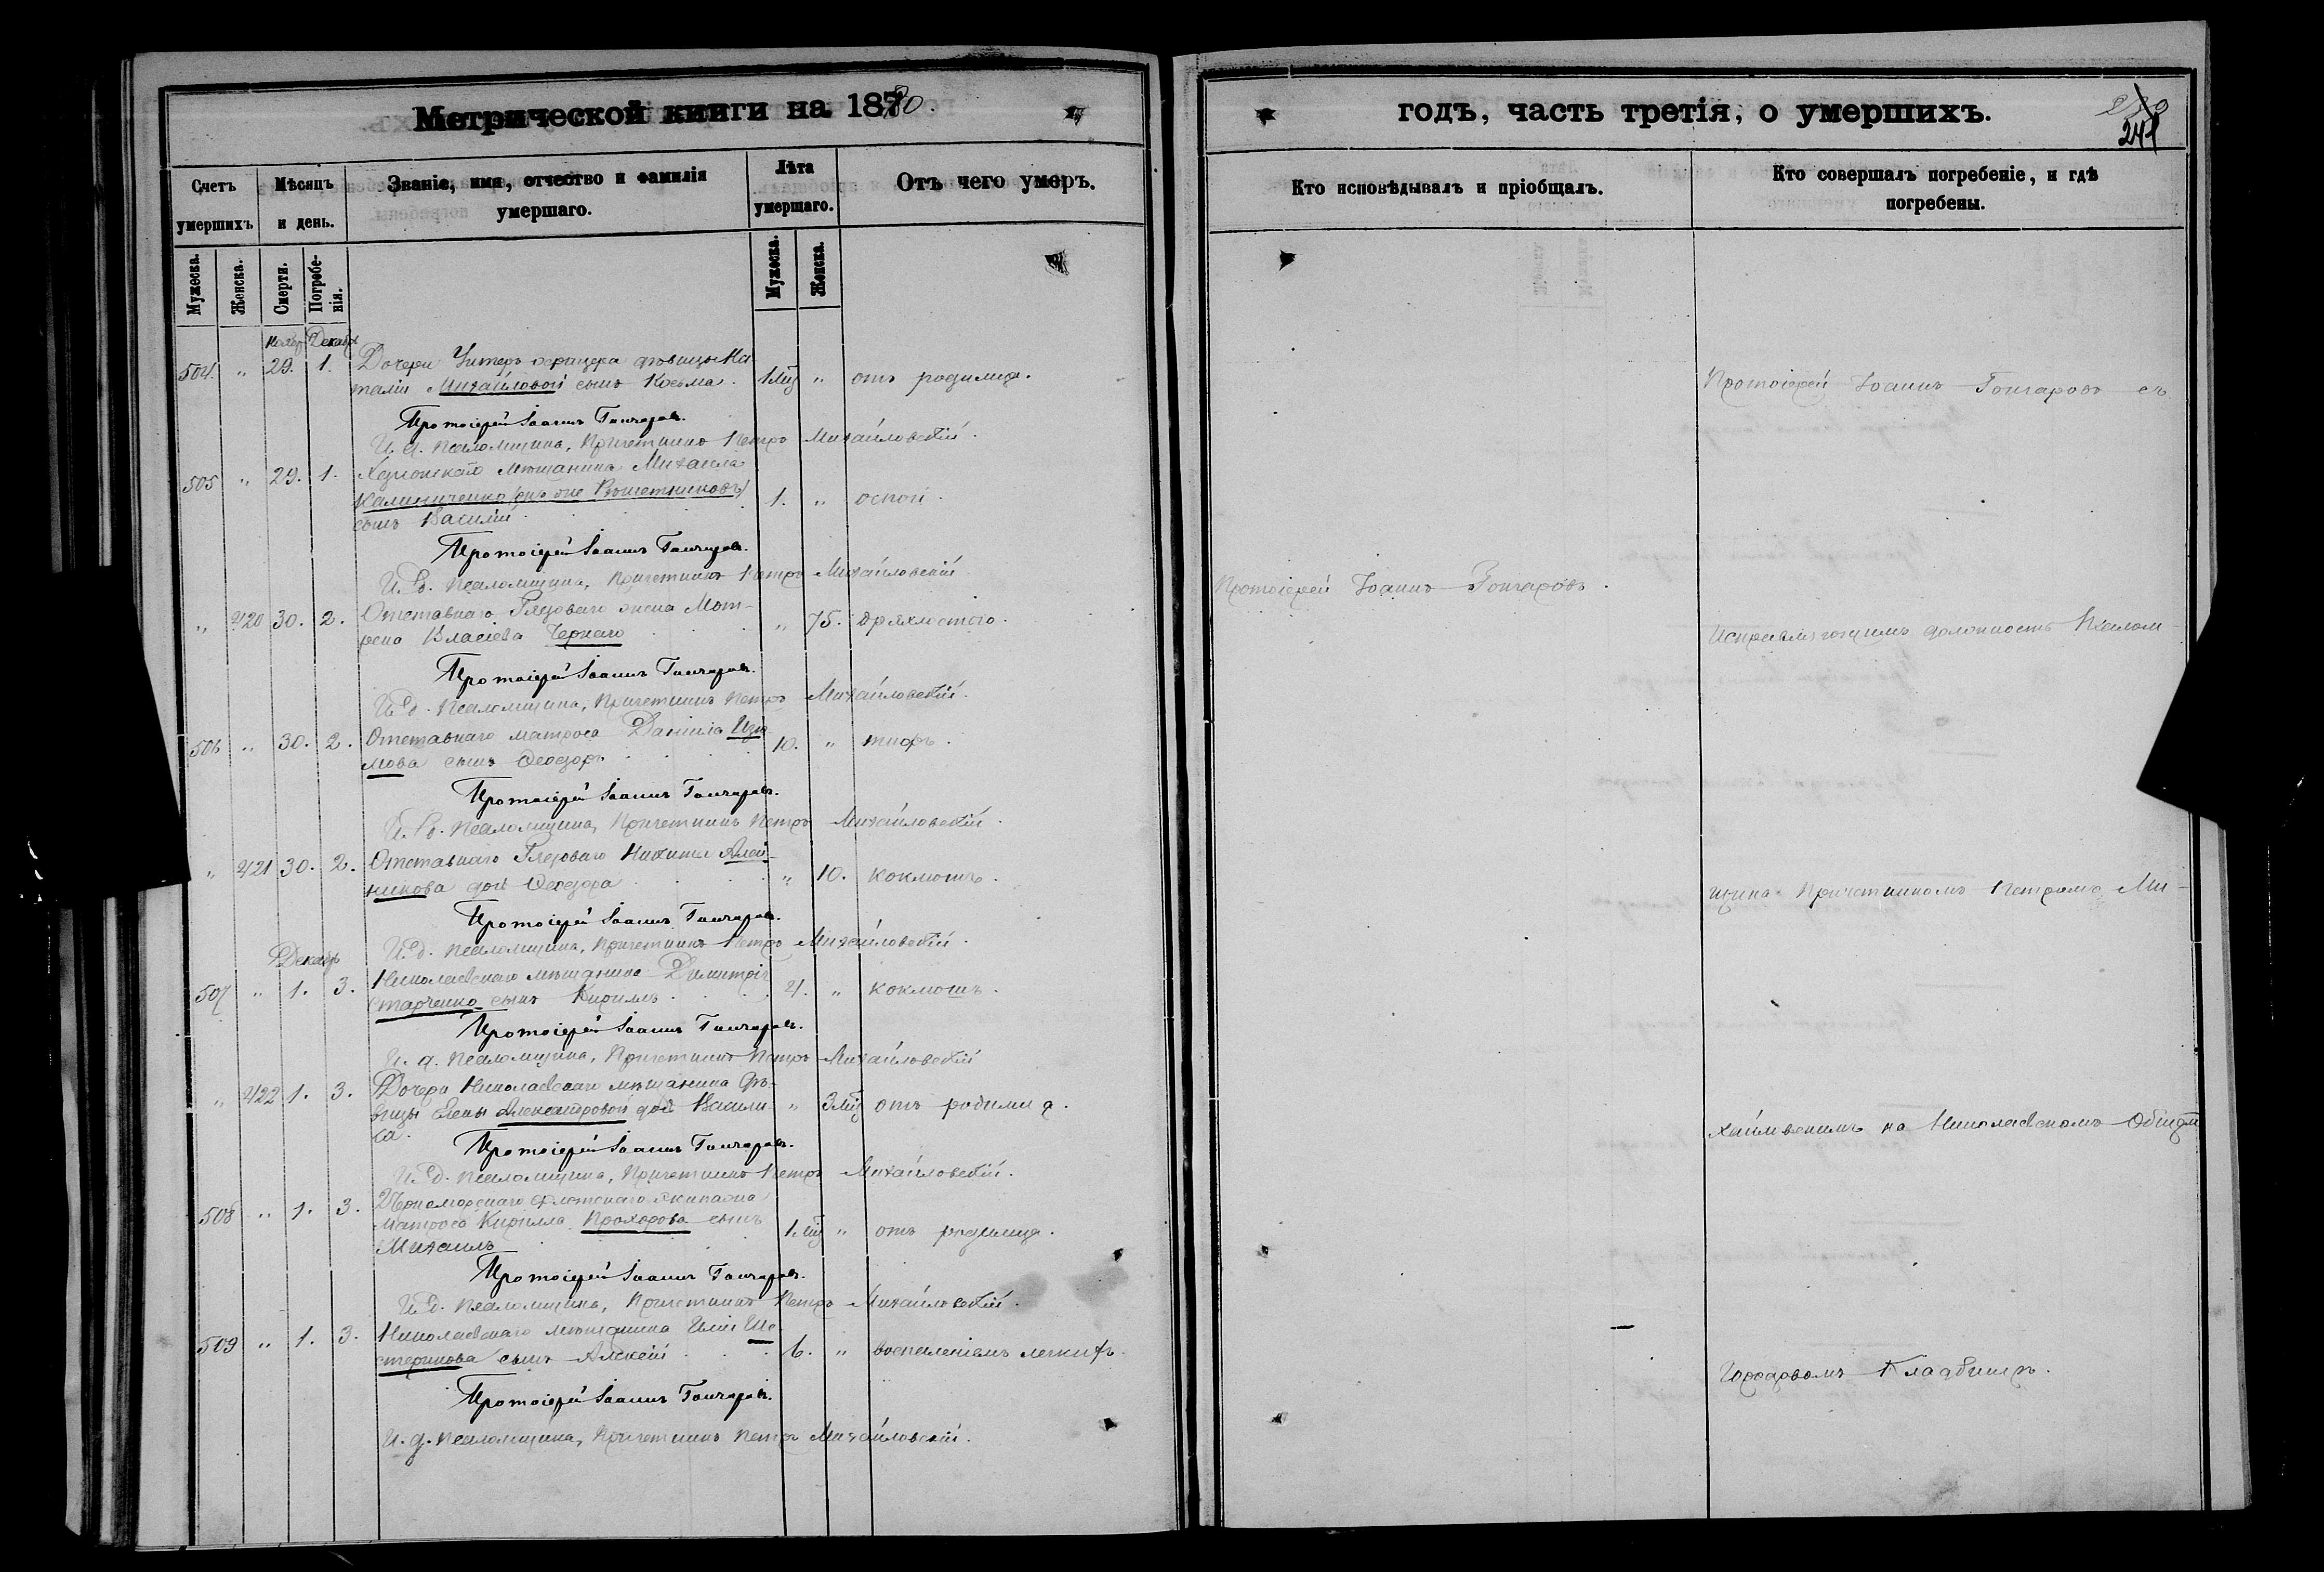 Метрической книги на 1880.
Счетъ умершихъ
Мѣсяцъ и день.
Званіе, имя, отчество и фамилія умершаго.
Лѣта умершаго.
Отъ чего умеръ.
Мужеска.
Женска.
Смерти.
Погребенія.
Мужеска.
Женска.
Ноябр Декабр
504. " 29. 1. Дочери Унтеръ офицера дѣвицы На-
таліи Михайловой сынъ Косьма. 1 мц " отъ родимца.
Протоіерей Іоаннъ Гончаровъ.
И. д. псаломщика, Причетникъ Петръ Михайловскій.
505 " 29. 1. Херсонскаго мѣщанина Михаила
Калиниченко (онъ же Вѣшетниковъ)
сынъ Василій 1. " оспой.
Протоіерей Іоаннъ Гончаровъ.
И. д. псаломщика, Причетникъ Петръ Михайловскій
" 420 30. 2. Отставнаго Рядоваго жена Мот-
рена Власіева Чернаго " 75. дряхлостію.
Протоіерей Іоаннъ Гончаровъ.
И. д. псаломщика, Причетникъ Петръ Михайловскій.
506 " 30. 2. Отставнаго матроса Даніила Изю-
мова сынъ Ѳеодоръ 10. " тифъ.
Протоіерей Іоаннъ Гончаровъ.
И. д. псаломщика, Причетникъ Петръ Михайловскій.
" 421 30. 2. Отставнаго Рядоваго Никиты Алей-
никова дочь Ѳеодора " 10. коклюшъ.
Протоіерей Іоаннъ Гончаровъ.
И. д. псаломщика, Причетникъ Петръ Михайловскій.
Декабр
507 " 1. 3. Николаевскаго мѣщанина Димитрія
Старченко сынъ Кириллъ 4. " коклюшъ.
Протоіерей Іоаннъ Гончаровъ.
И. д. псаломщика, Причетникъ Петръ Михайловскій
" 422 1. 3. Дочери Николаевскаго мѣщанина дѣ-
вицы Елены Александровой дочь Васили-
са. " 3 мц отъ родимца.
Протоіерей Іоаннъ Гончаровъ.
И. д. псаломщика, Причетникъ Петръ Михайловскій.
508 " 1. 3. Черноморскаго флотскаго экипажа
матроса Кирилла Прохорова сынъ
Михаилъ 1 мц " отъ родимца.
Протоіерей Іоаннъ Гончаровъ.
И. д. псаломщика, Причетникъ Петръ Михайловскій.
509 " 1. 3. Николаевскаго мѣщанина Иліи Ше-
стерикова сынъ Алексій 6. " воспаленіемъ легкихъ.
Протоіерей Іоаннъ Гончаровъ.
И. д. псаломщика, Причетникъ Петръ Михайловскій.
годъ, часть третія, о умершихъ.
241
Кто исповѣдывалъ и пріобщалъ.
Кто совершалъ погребеніе, и гдѣ погребены.
Протоіерей Іоаннъ Гончаровъ съ
Протоіерей Іоаннъ Гончаровъ.
Исправляющимъ должность Псалом-
щика Причетникомъ Петромъ Ми-
хайловскимъ на Николаевскомъ Общем
Городовомъ Кладбищѣ.